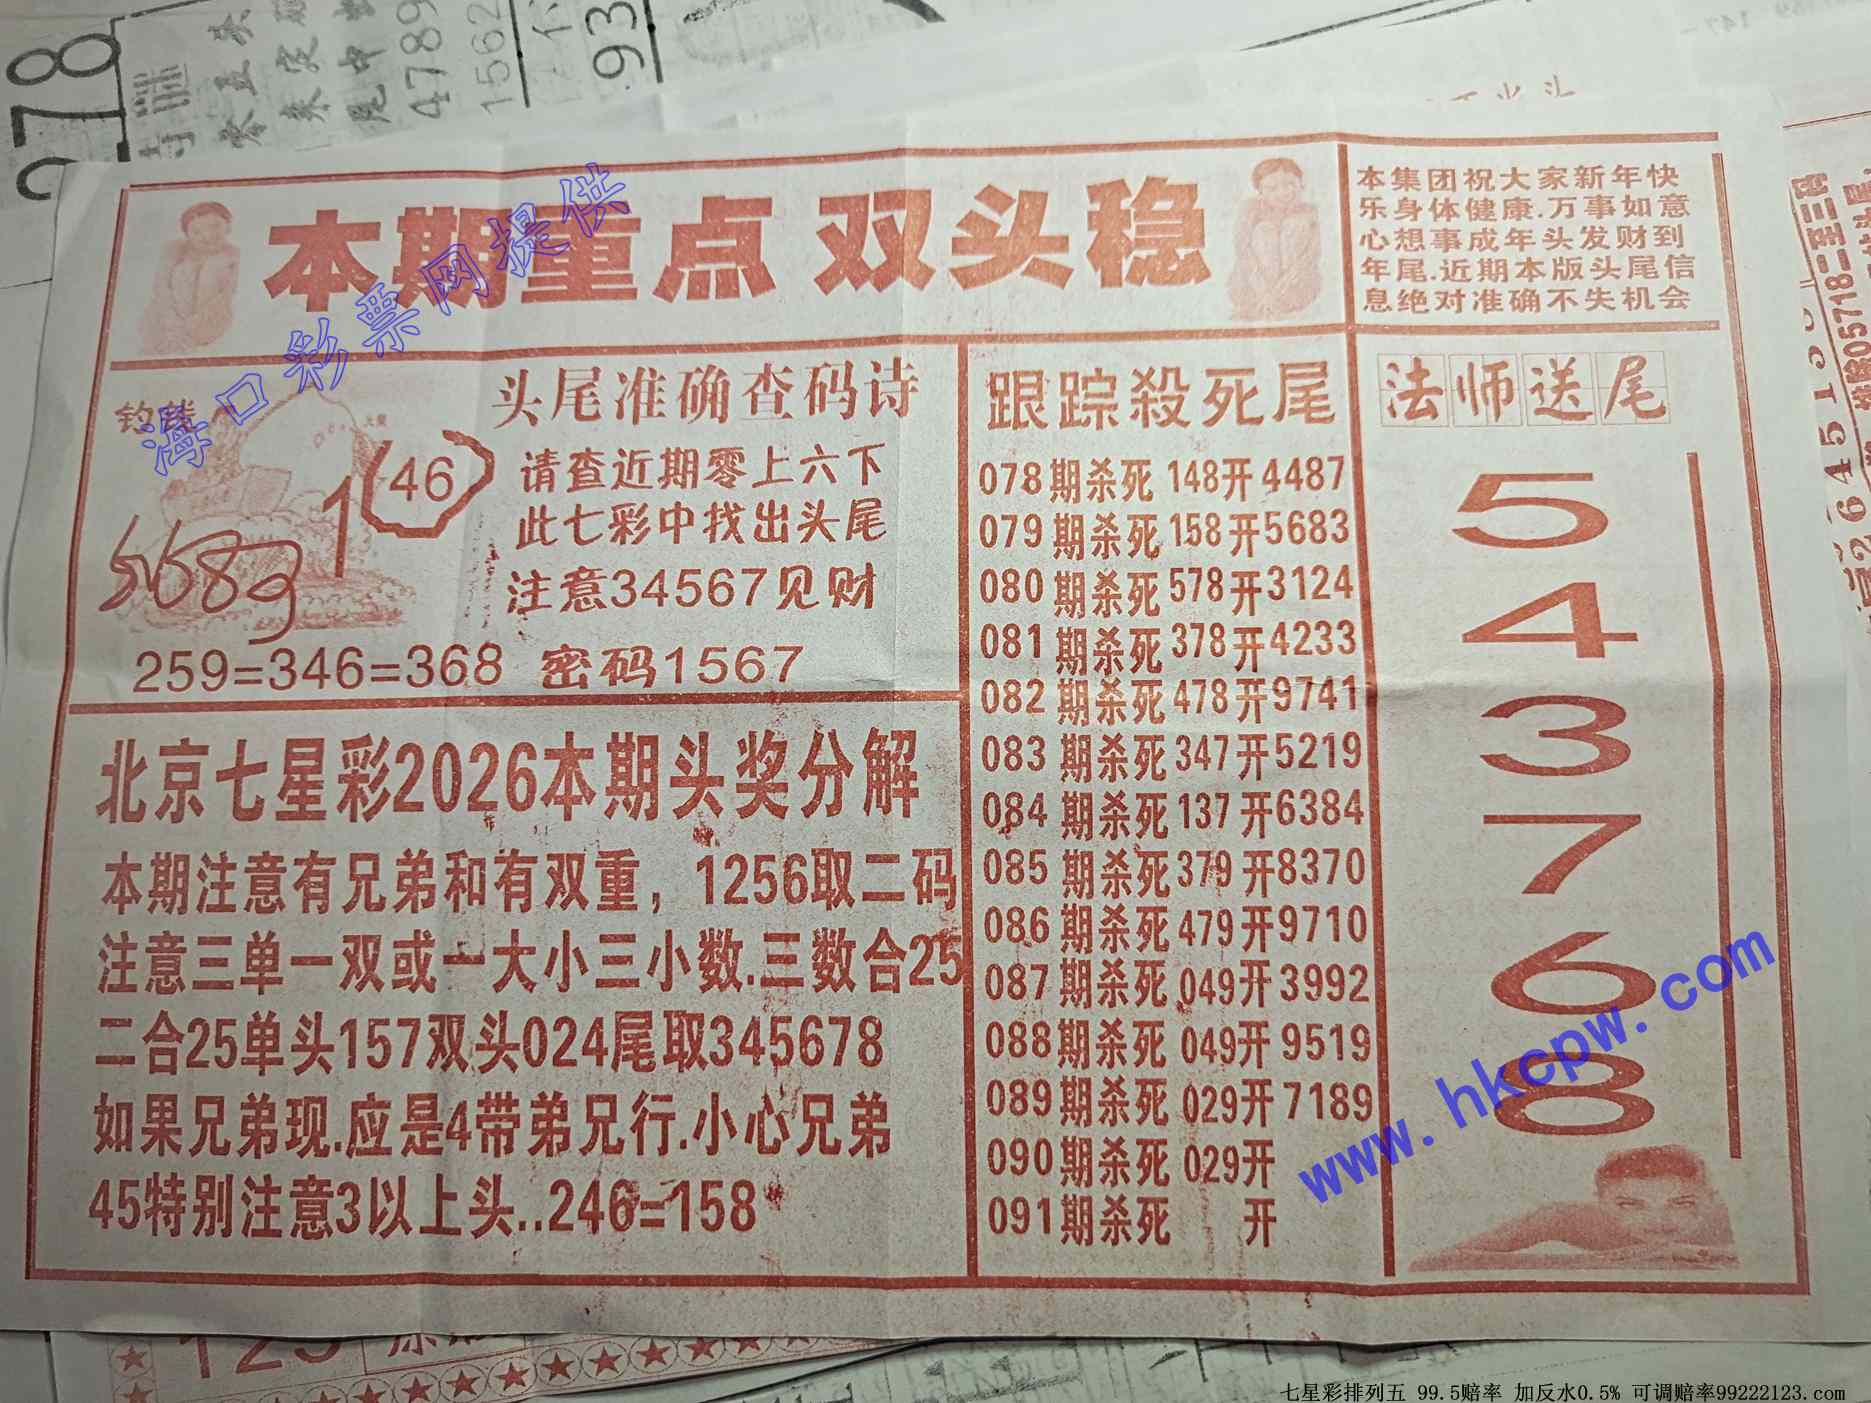 278
4789
1562
93
本期重点 双头稳
本集团祝大家新年快
乐身体健康.万事如意
心想事成年头发财到
年尾.近期本版头尾信
息绝对准确不失机会
海口彩票网提供
钓钱
1 (46)
5683
头尾准确查码诗
请查近期零上六下
此七彩中找出头尾
注意34567见财
259=346=368 密码1567
北京七星彩2026本期头奖分解
本期注意有兄弟和有双重，1256取二码
注意三单一双或一大小三小数.三数合25
二合25单头157双头024尾取345678
如果兄弟现.应是4带弟兄行.小心兄弟
45特别注意3以上头..246=158
跟踪殺死尾
078期杀死 148开4487
079期杀死 158开5683
080期杀死 578开3124
081期杀死 378开4233
082期杀死 478开9741
083期杀死 347开5219
084期杀死 137开6384
085期杀死 379开8370
086期杀死 479开9710
087期杀死 049开3992
088期杀死 049开9519
089期杀死 029开7189
090期杀死 029开
091期杀死 开
法师送尾
5
4
3
7
6
8
www.hkcpw.com
123
七星彩排列五 99.5赔率 加反水0.5% 可调赔率99222123.com